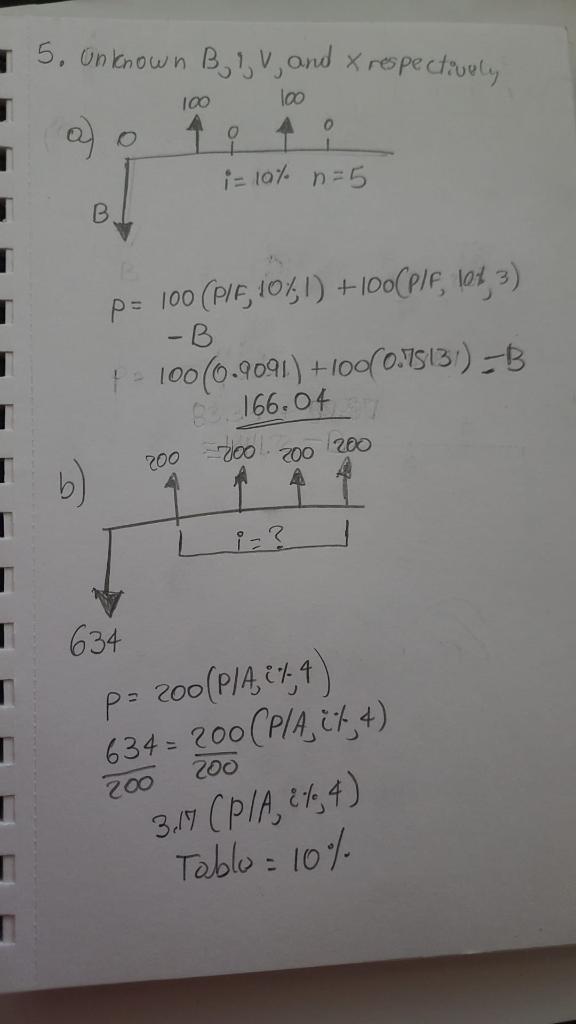 5. Unknown B, i, V, and x respectively
100 100
a) 0 0 0
i = 10% n = 5
B
P = 100 (P/F, 10%, 1) + 100 (P/F, 10%, 3)
- B
= 100 (0.9091) + 100 (0.75131) = B
166.04
200 200 200 200
b)
i = ?
634
P = 200 (P/A, i%, 4)
634 = 200 (P/A, i%, 4)
200 200
3.17 (P/A, i%, 4)
Tabla = 10%